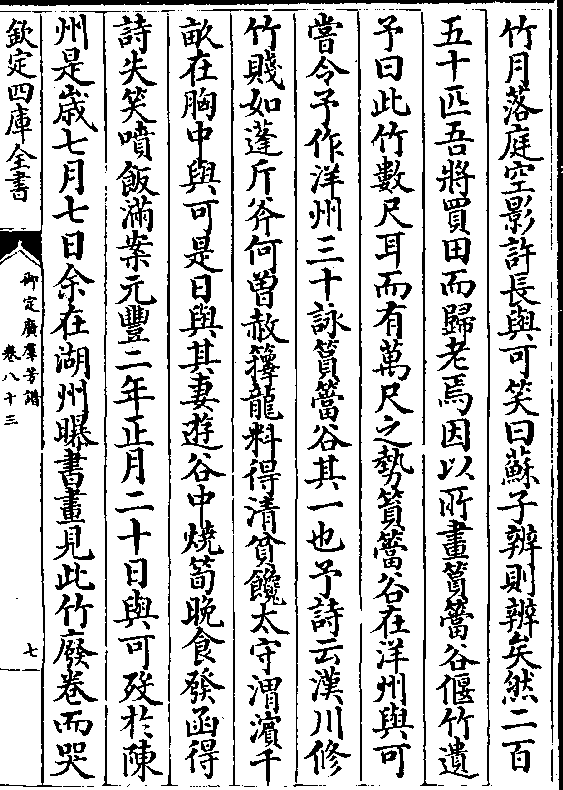 竹月落庭空影許長與可笑曰蘇子辨則辨矣然二百
五十匹吾將買田而歸老焉因以所畫篔簹谷偃竹遺
予曰此竹數尺耳而有萬尺之勢篔簹谷在洋州與可
嘗令予作洋州三十詠篔簹谷其一也予詩云漢川修
竹賤如蓬斤斧何曾赦籜龍料得清貧饞太守渭濱千
畝在胸中與可是日與其妻遊谷中燒筍晚食發函得
詩失笑噴飯滿案元豐二年正月二十日與可歿於陳
州是嵗七月七日余在湖州曝書畫見此竹廢卷而哭
欽定四庫全書
御定廣羣芳譜
卷八十三
七